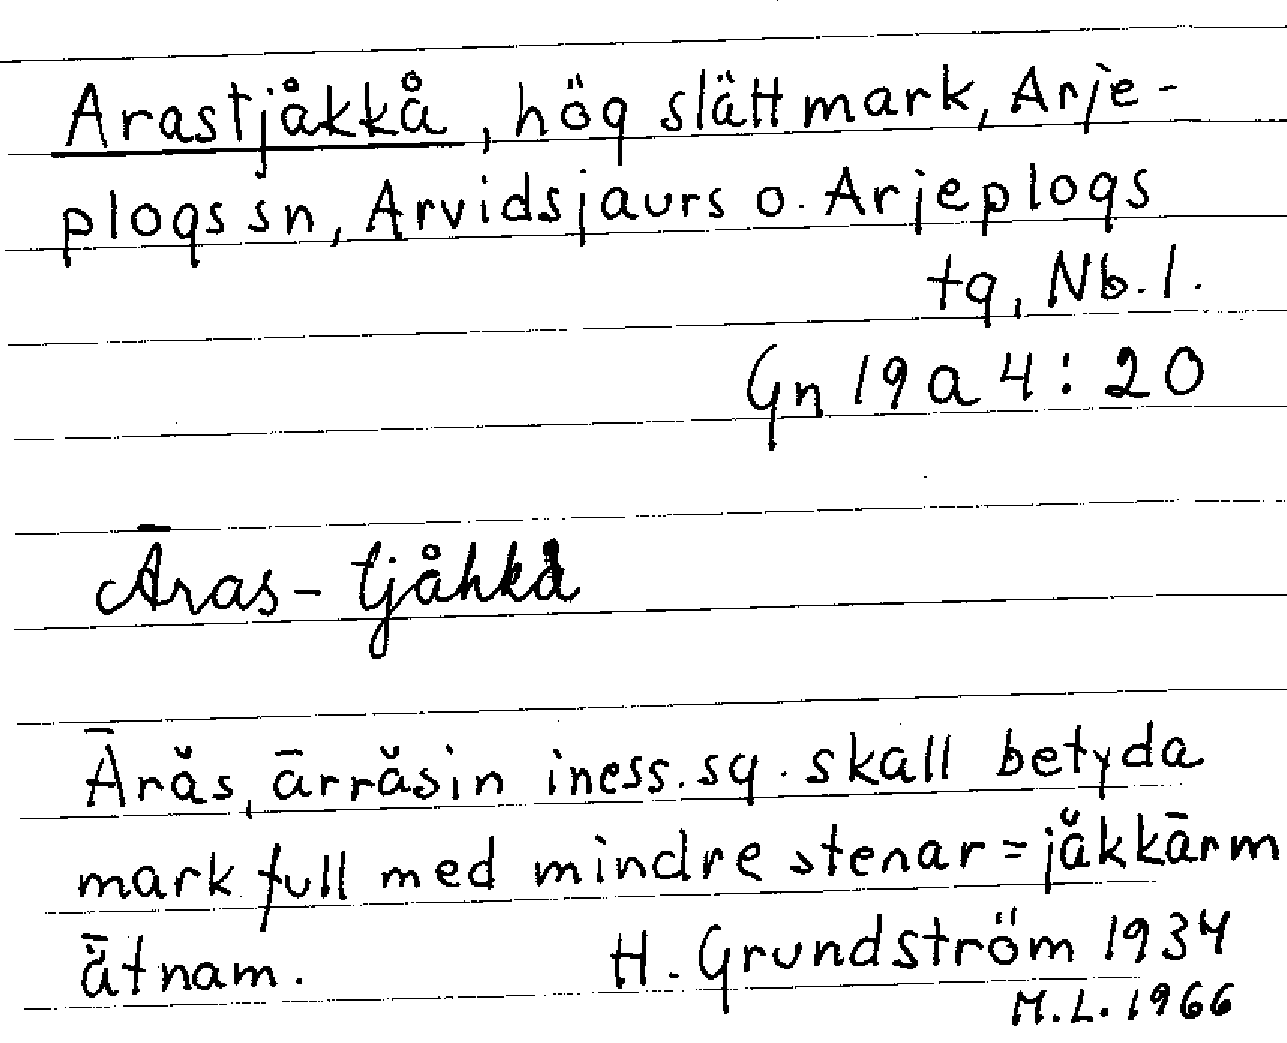 Arastjåkkå, hög slätt mark, Arje-
plogs sn, Arvidsjaurs o. Arjeplogs
tg, Nb. l.
Gn 19 a 4 : 20
Āras - tjåhkå
Ārăs, ārrăsin iness. sg. skall betyda
mark full med mindre stenar = jăkkārm
ātnam.
H. Grundström 1934
M.L. 1966